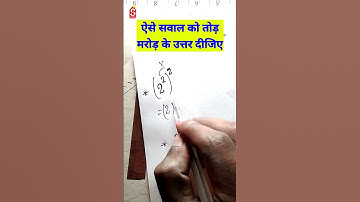 S
ऐसे सवाल को तोड़
मरोड़ के उत्तर दीजिए
* (2²)²
= (2)
*